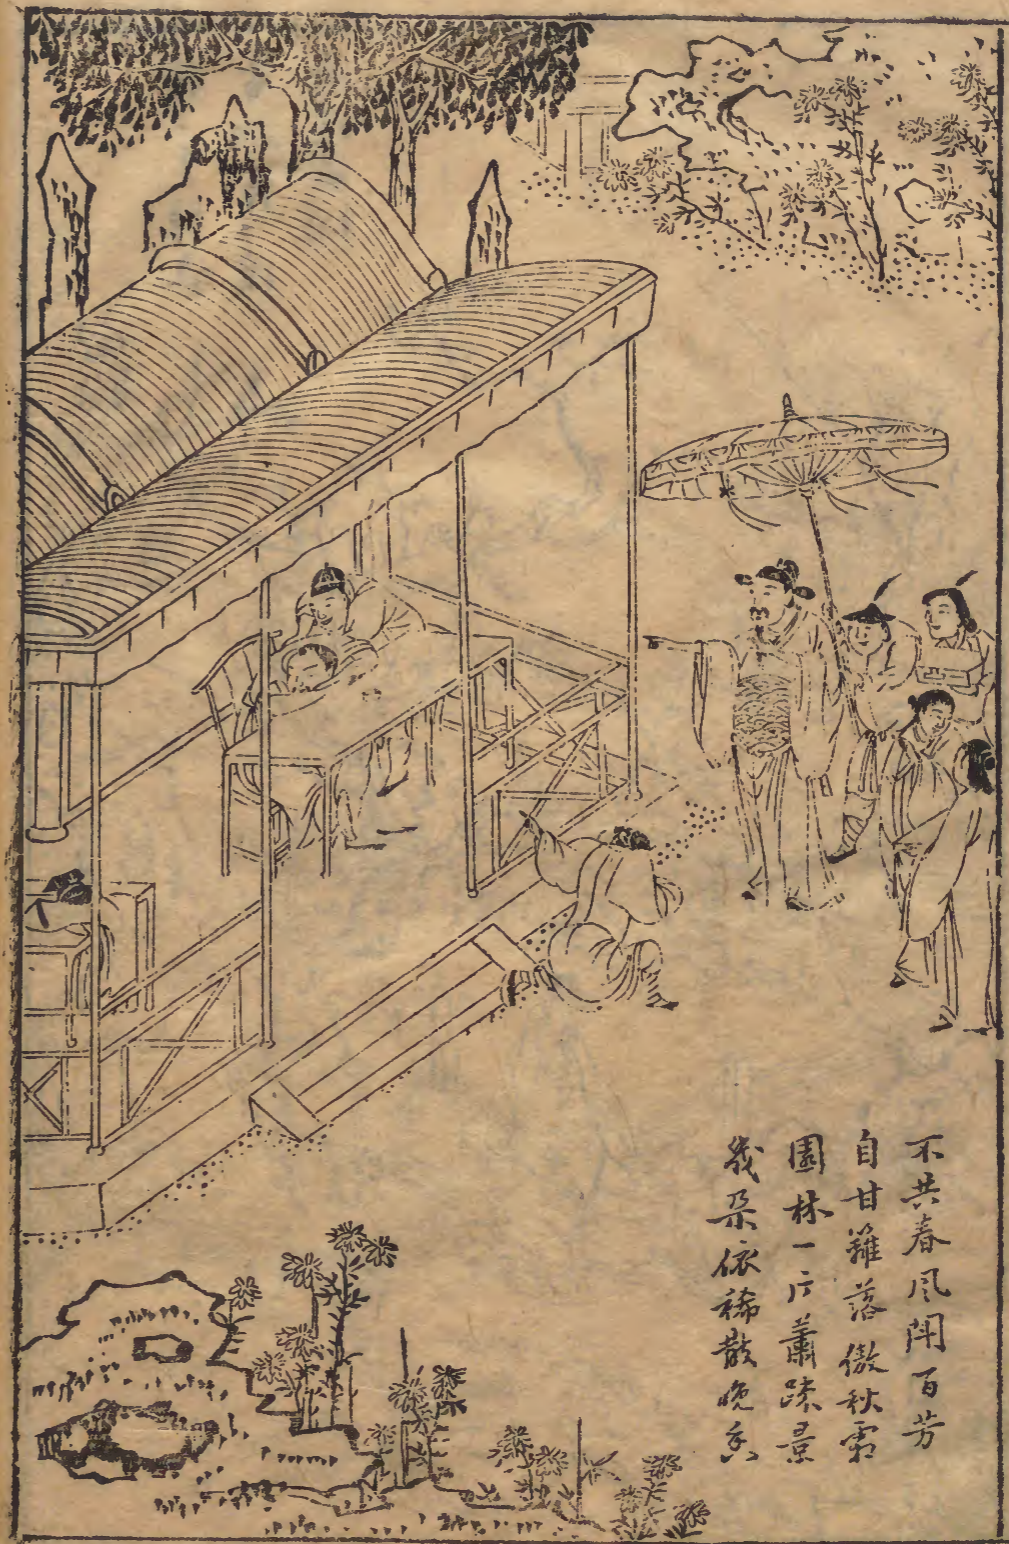 不共春風鬥百芳
自甘籬落傲秋霜
園林一片蕭疎景
幾朶依稀散晚香